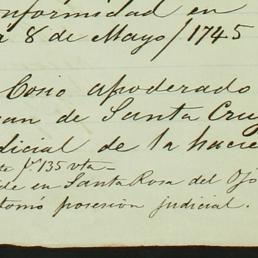 nformidad en
8 de Mayo/1745
Cosio apoderado
an de Santa Cruz
dicial de la hacie
te f. 135 vta_
ide en Santa Rosa del Ojo
tomó posesión judicial.